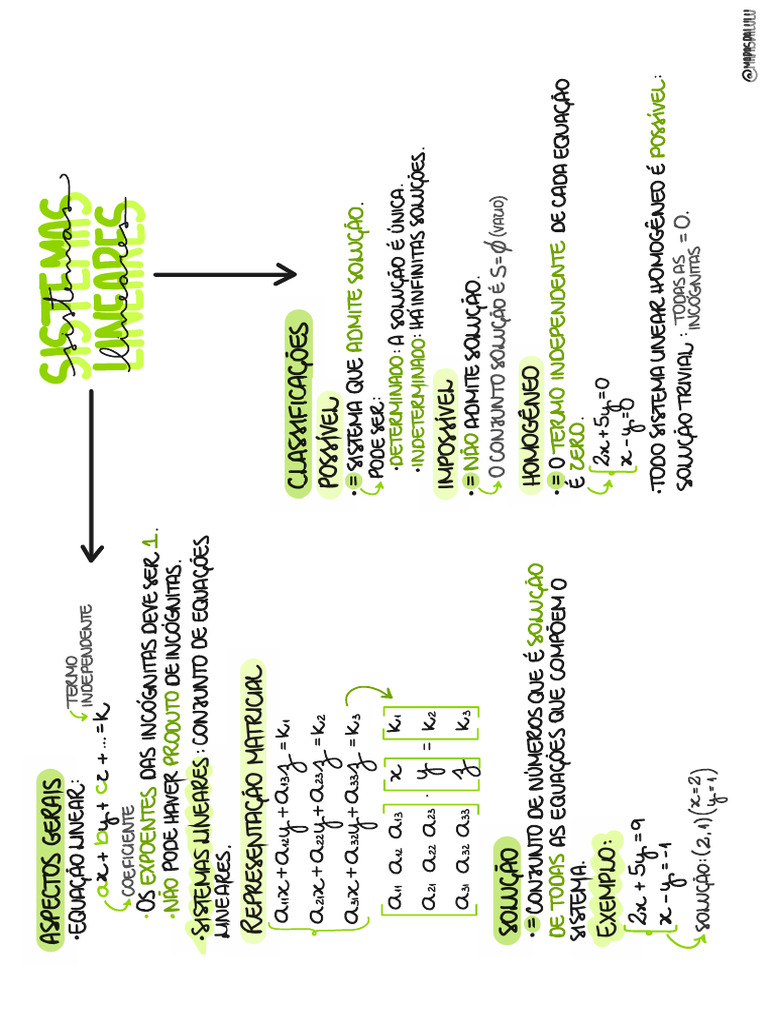 SISTEMAS
sistemas
LINEARES
lineares
ASPECTOS GERAIS
•EQUAÇÃO LINEAR:
ax + by + cz + ... = k
TERMO
INDEPENDENTE
COEFICIENTE
•OS EXPOENTES DAS INCÓGNITAS DEVE SER 1.
•NÃO PODE HAVER PRODUTO DE INCÓGNITAS.
•SISTEMAS LINEARES: CONJUNTO DE EQUAÇÕES
LINEARES.
REPRESENTAÇÃO MATRICIAL
a11x + a12y + a13z = k1
a21x + a22y + a23z = k2
a31x + a32y + a33z = k3
a11 a12 a13 x k1
a21 a22 a23 . y = k2
a31 a32 a33 z k3
SOLUÇÃO
•= CONJUNTO DE NÚMEROS QUE É SOLUÇÃO
DE TODAS AS EQUAÇÕES QUE COMPÕEM O
SISTEMA.
EXEMPLO:
2x + 5y = 9
x - y = -1
SOLUÇÃO: (2,1) (x=2
y=1)
CLASSIFICAÇÕES
POSSÍVEL
•= SISTEMA QUE ADMITE SOLUÇÃO.
PODE SER:
•DETERMINADO: A SOLUÇÃO É ÚNICA.
•INDETERMINADO: HÁ INFINITAS SOLUÇÕES.
IMPOSSÍVEL
•= NÃO ADMITE SOLUÇÃO.
O CONJUNTO SOLUÇÃO É S=ϕ (VAZIO)
HOMOGÊNEO
•= O TERMO INDEPENDENTE DE CADA EQUAÇÃO
É ZERO.
2x + 5y = 0
x - y = 0
•TODO SISTEMA LINEAR HOMOGÊNEO É POSSÍVEL:
SOLUÇÃO TRIVIAL: TODAS AS
INCÓGNITAS = 0.
@MAPASDALULU